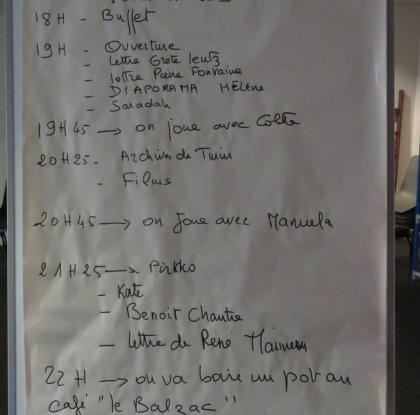 18H - Buffet
19H - Ouverture
- lettre Grete leutz
- lettre Pierre Fontaine
- DIAPORAMA Hélène
- Saradah
19H45 → on joue avec Colette
20H25 - Archives de Turin
- Films
20H45 → on joue avec Manuela
21H25 → Pirkko
- Kate
- Benoit Chantre
- lettre de René
22H → on va boire un pot au
café "le Balzac"